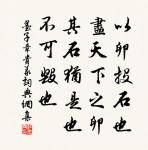 以卵投石也
盡天下之卵
其石猶是也
不可毀也
墨子章貴義詞典網集